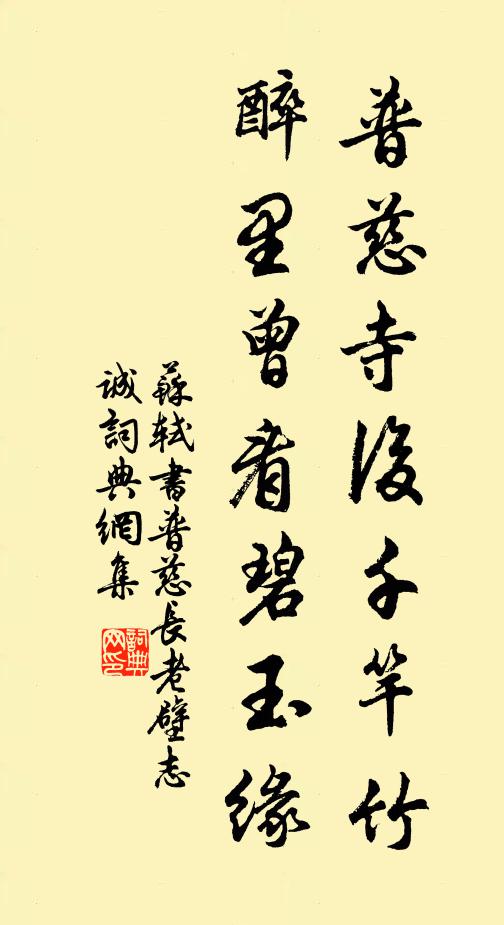 普慈寺後千竿竹
醉里曾看碧玉緣
蘇軾書普慈長老壁志
誠詞典網集
詞典
网印